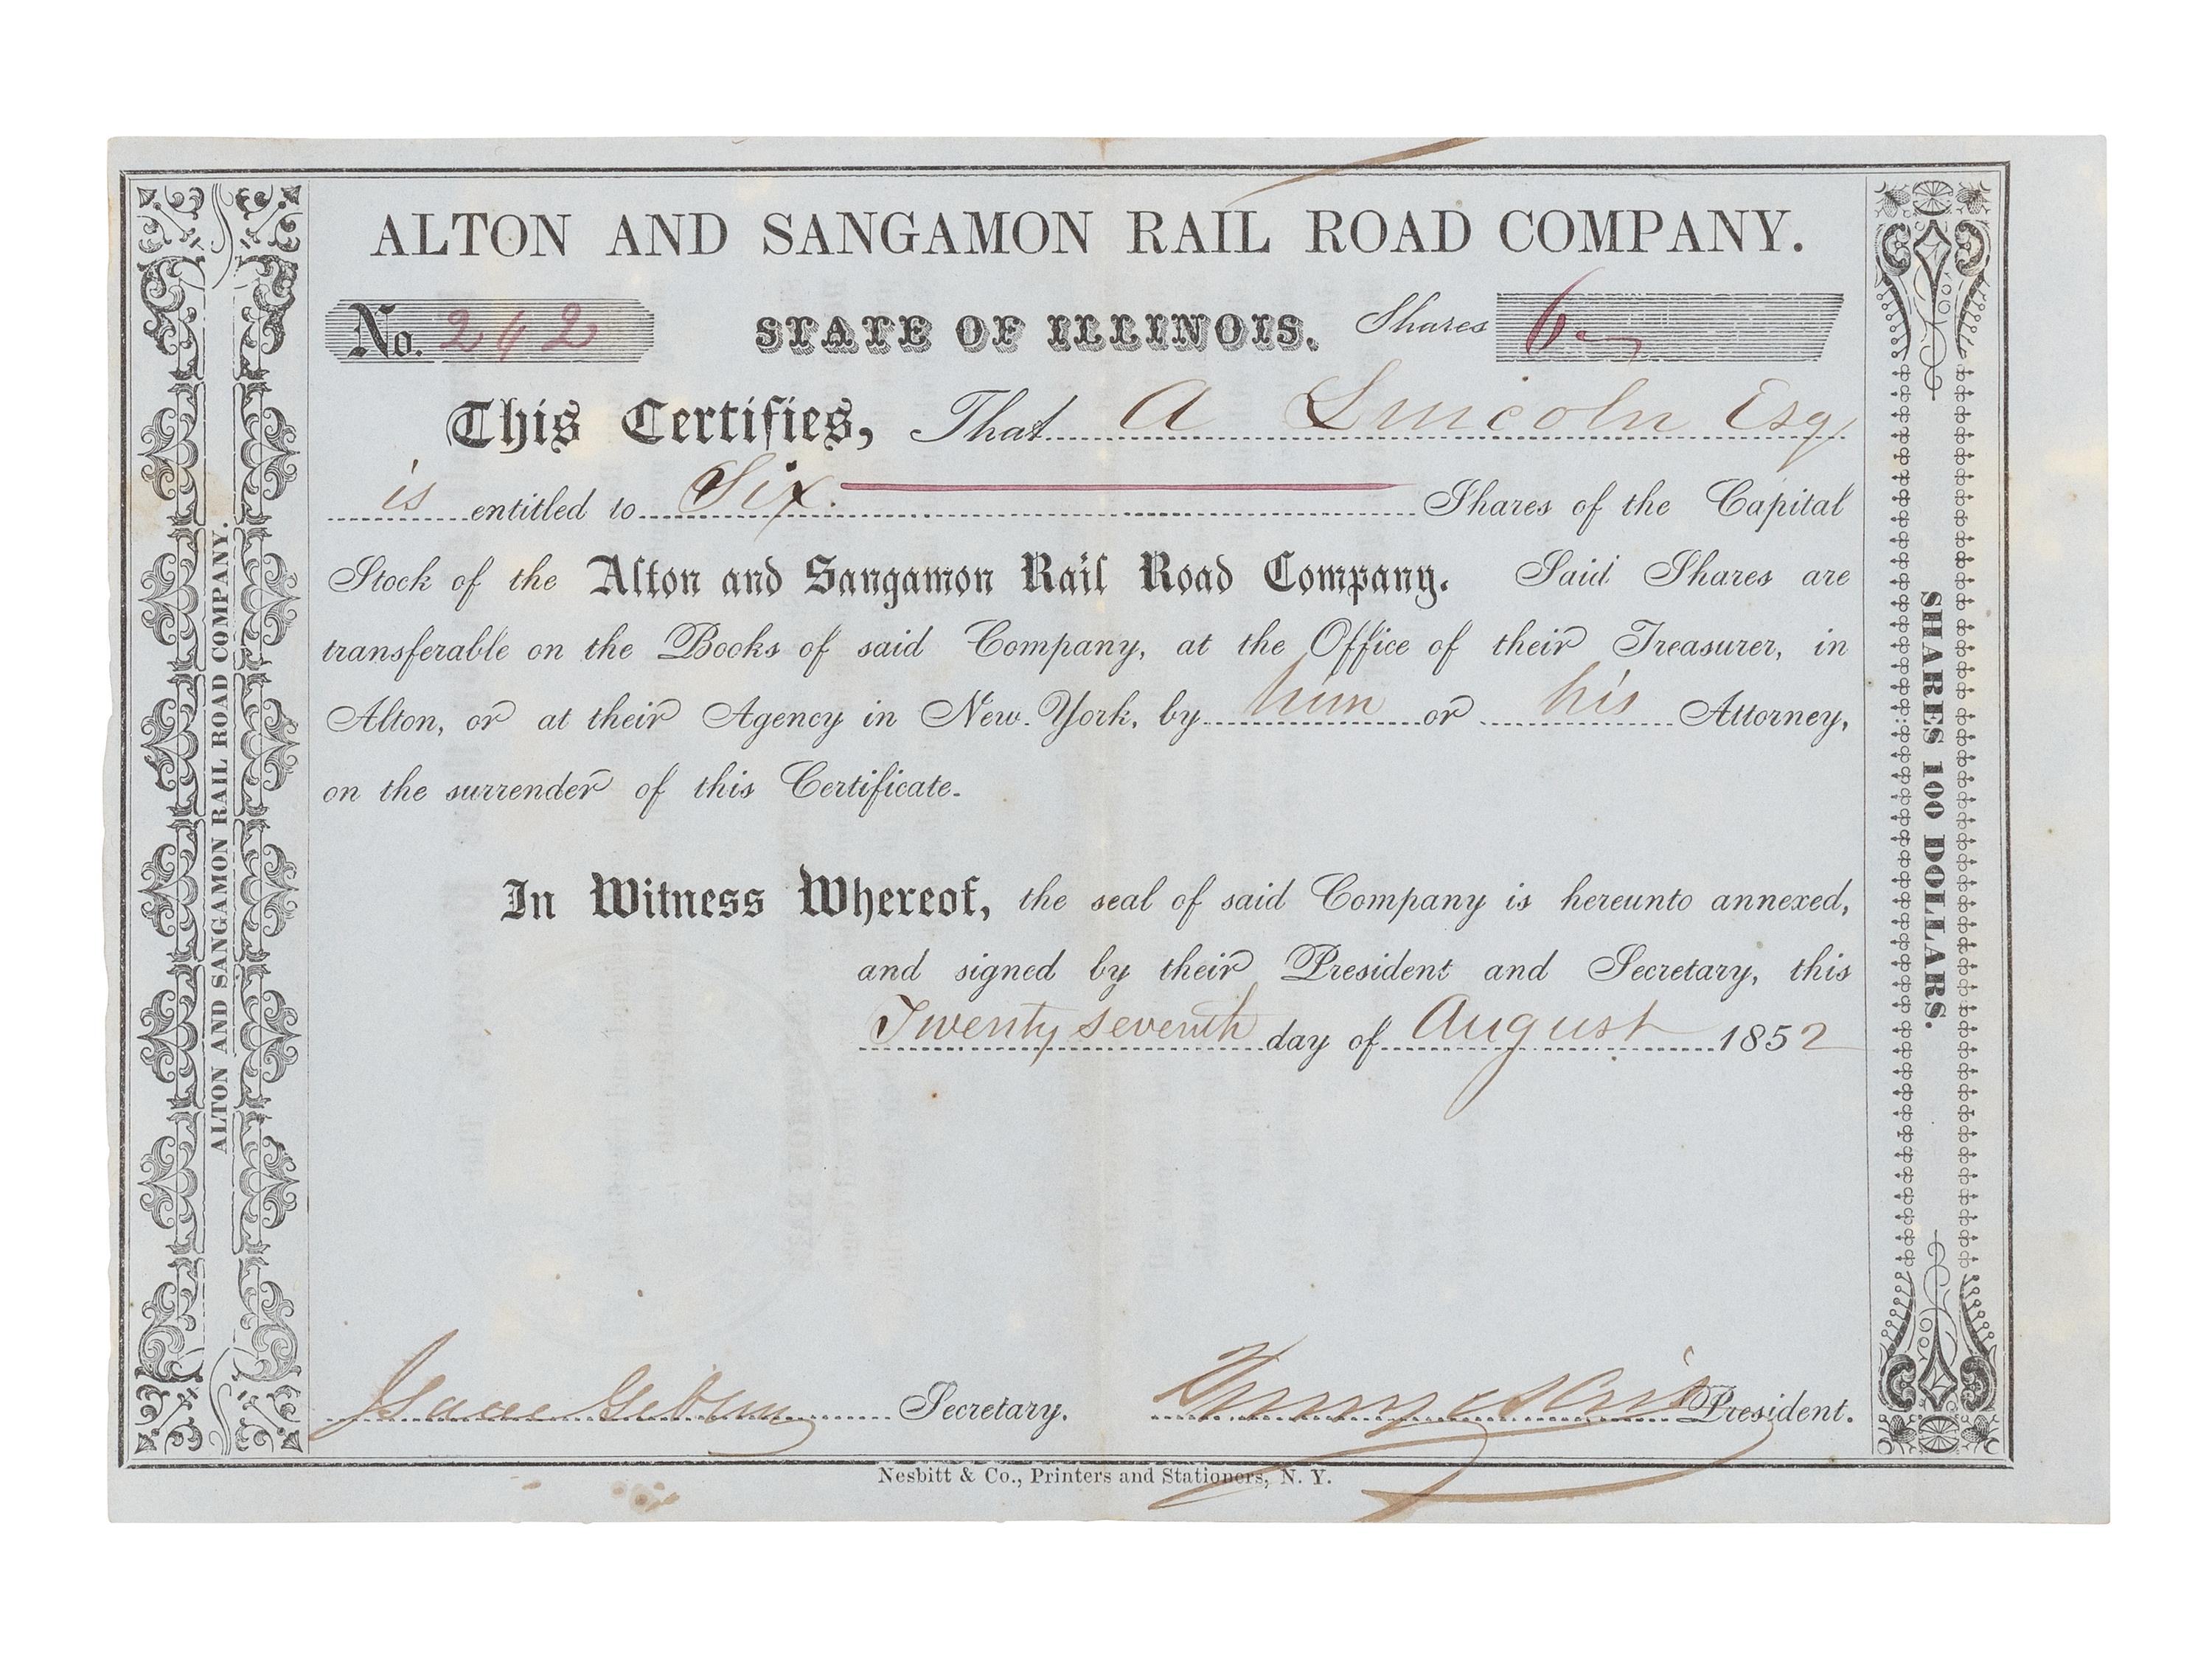 ALTON AND SANGAMON RAIL ROAD COMPANY.
No. 242 STATE OF ILLINOIS. Shares 6
This Certifies, That A Lincoln Esq
is entitled to Six Shares of the Capital
Stock of the Alton and Sangamon Rail Road Company. Said Shares are
transferable on the Books of said Company, at the Office of their Treasurer, in
Alton, or at their Agency in New York, by him or his Attorney,
on the surrender of this Certificate.
In Witness Whereof, the seal of said Company is hereunto annexed,
and signed by their President and Secretary, this
Twenty seventh day of August 1852
Isaac Gibson Secretary. President.
Nesbitt & Co., Printers and Stationers, N. Y.
ALTON AND SANGAMON RAIL ROAD COMPANY.
SHARES 100 DOLLARS.